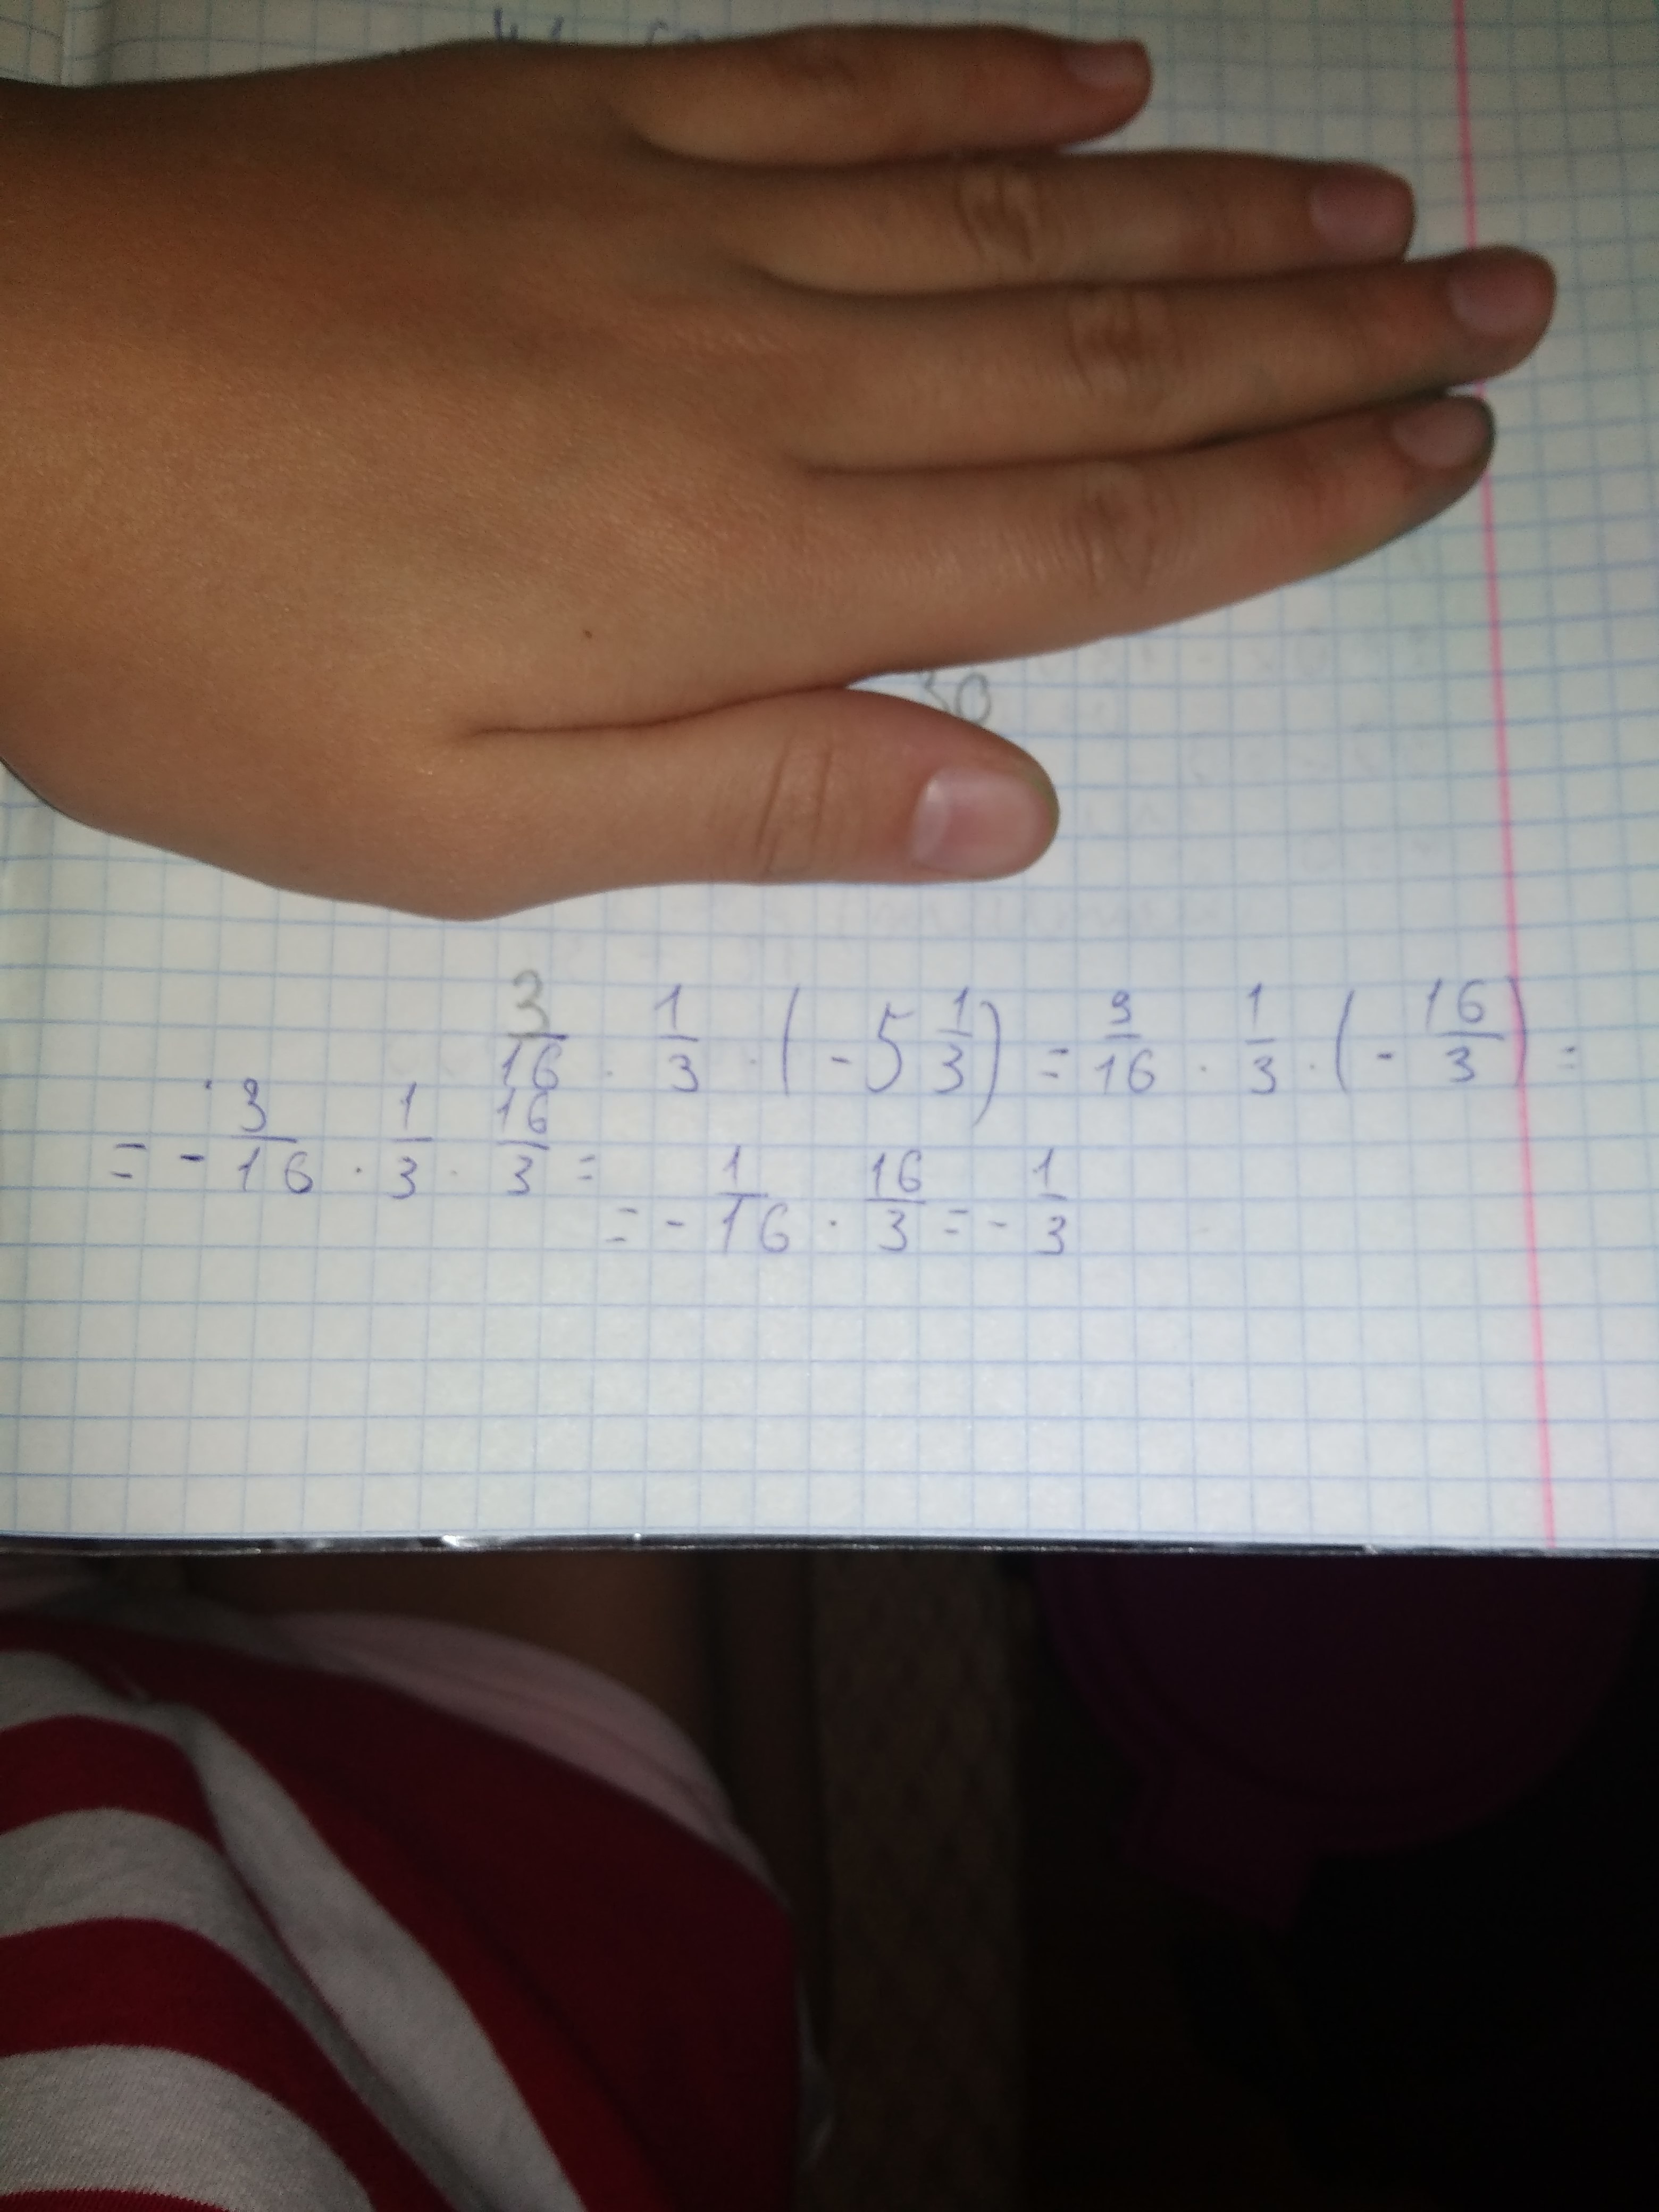 30
3/16 · 1/3 · (-5 1/3) = 3/16 · 1/3 · (- 16/3) =
= - 3/16 · 1/3 · 16/3 =
= - 1/16 · 16/3 = - 1/3